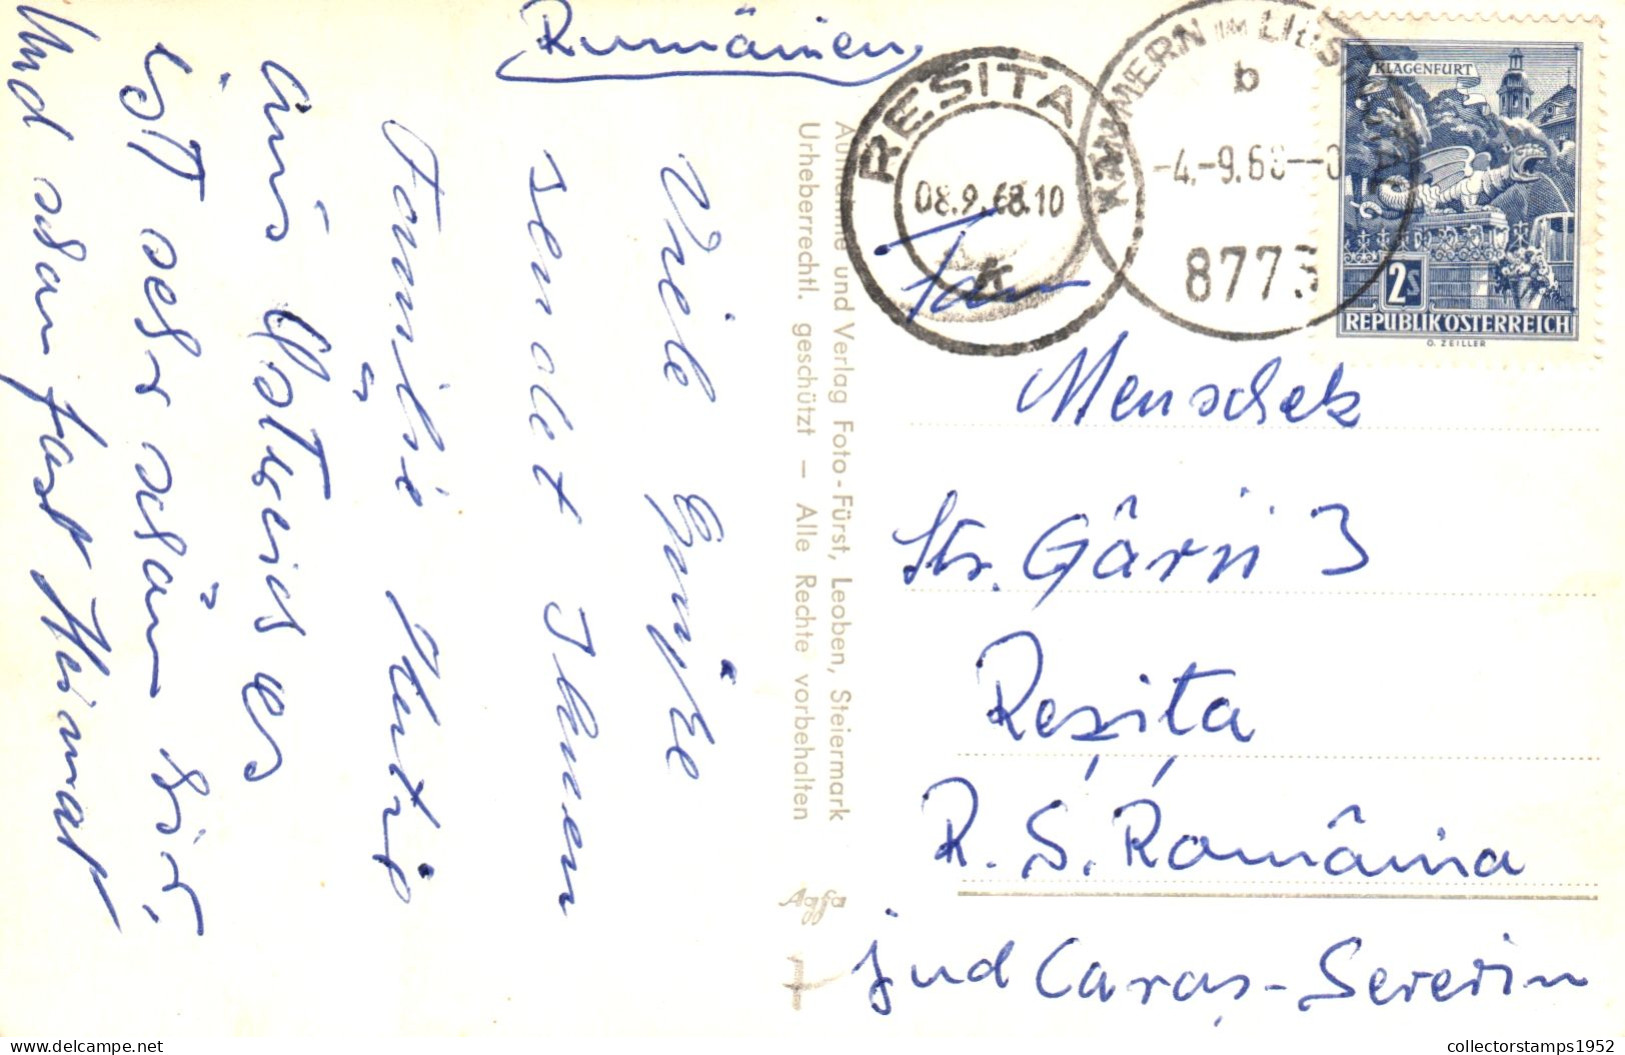 Rumänien
RESITA
08.9.68.10
KAMMERN IM LIESINGTAL
b
-4.-9.68--0
8773
KLAGENFURT
2S
REPUBLIK ÖSTERREICH
O. ZEILLER
Fam
Menschek
Str. Gârii 3
Reşita
R. S. România
jud Caraş-Severin
Viele Grüße
sendet Ihnen
Familie
aus Österreich es
ist sehr schön hir,
Und schon fast Heimat
Aufnahme und Verlag Foto-Fürst, Leoben, Steiermark
Urheberrechtl. geschützt – Alle Rechte vorbehalten
Agfa
collectorstamps1952
www.delcampe.net